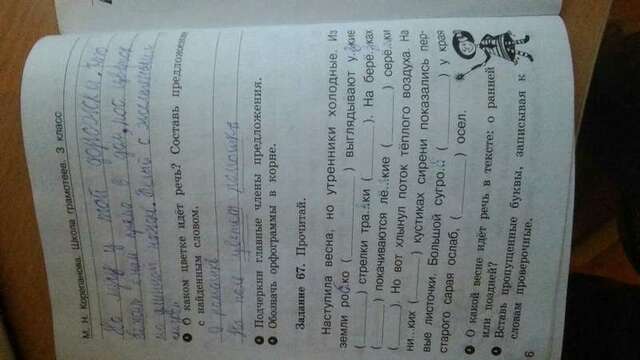 М. Н. Корепанова. Школа грамотеев. 3 класс
На лугу у той дорожки,
в дом,
на длинной ножке.
О каком цветке идёт речь? Составь предложение
с найденным словом.
О ромашке
На поле цветёт ромашка
Подчеркни главные члены предложения.
Обозначь орфограммы в корне.
Задание 67. Прочитай.
Наступила весна, но утренники холодные. Из
земли ро.ко (______) выглядывают у.кие
(______) стрелки тра.ки (______). На берё.ках
(______) покачиваются лё.кие (______) серё.ки
(______). Но вот хлынул поток тёплого воздуха. На
ни.ких (______) кустиках сирени показались пер-
вые листочки. Большой сугро. (______) у края
старого сарая ослаб, (______) осел.
О какой весне идёт речь в тексте: о ранней
или поздней?
Вставь пропущенные буквы, записывая к
словам проверочные.
6